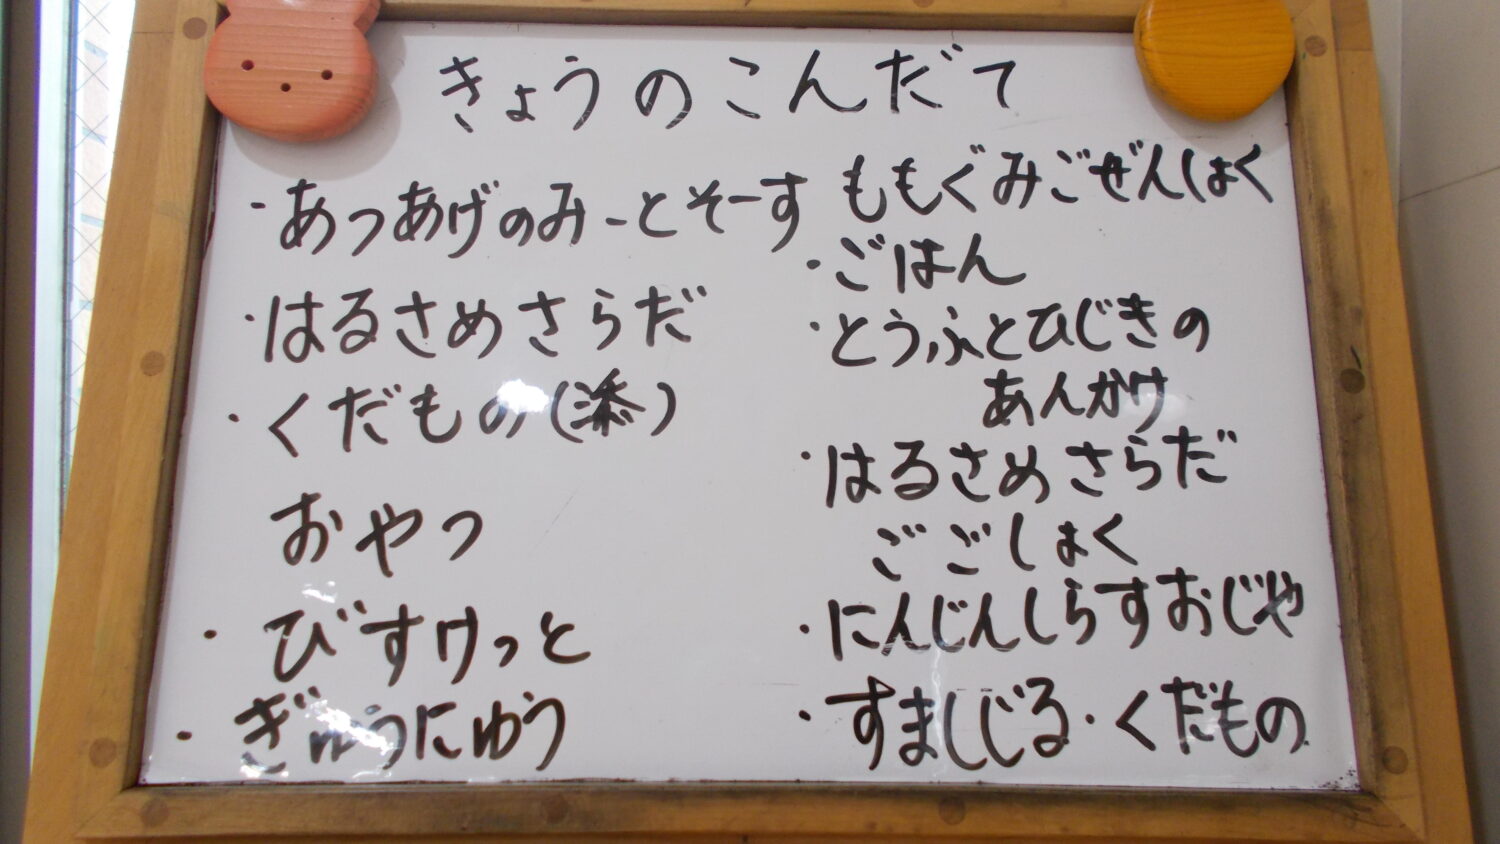 きょうのこんだて
・あつあげのみーとそーす
・はるさめさらだ
・くだもの(添)
おやつ
・びすけっと
・ぎゅうにゅう
ももぐみごぜんしょく
・ごはん
・とうふとひじきの
あんかけ
・はるさめさらだ
ごごしょく
・にんじんしらすおじや
・すましじる・くだもの